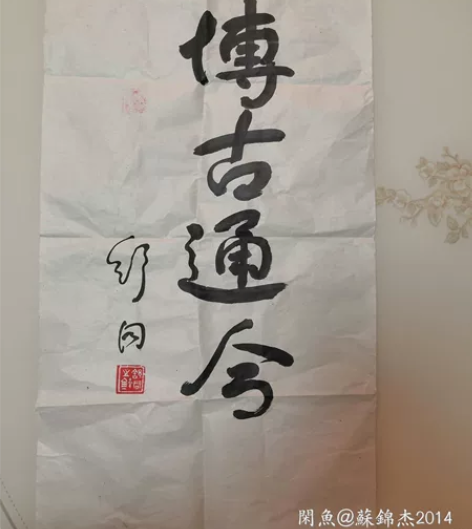 博古通今
舒同
閑魚@蘇錦杰2014